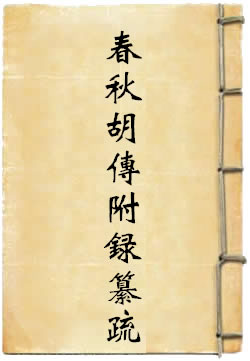 春秋胡傳附録纂疏